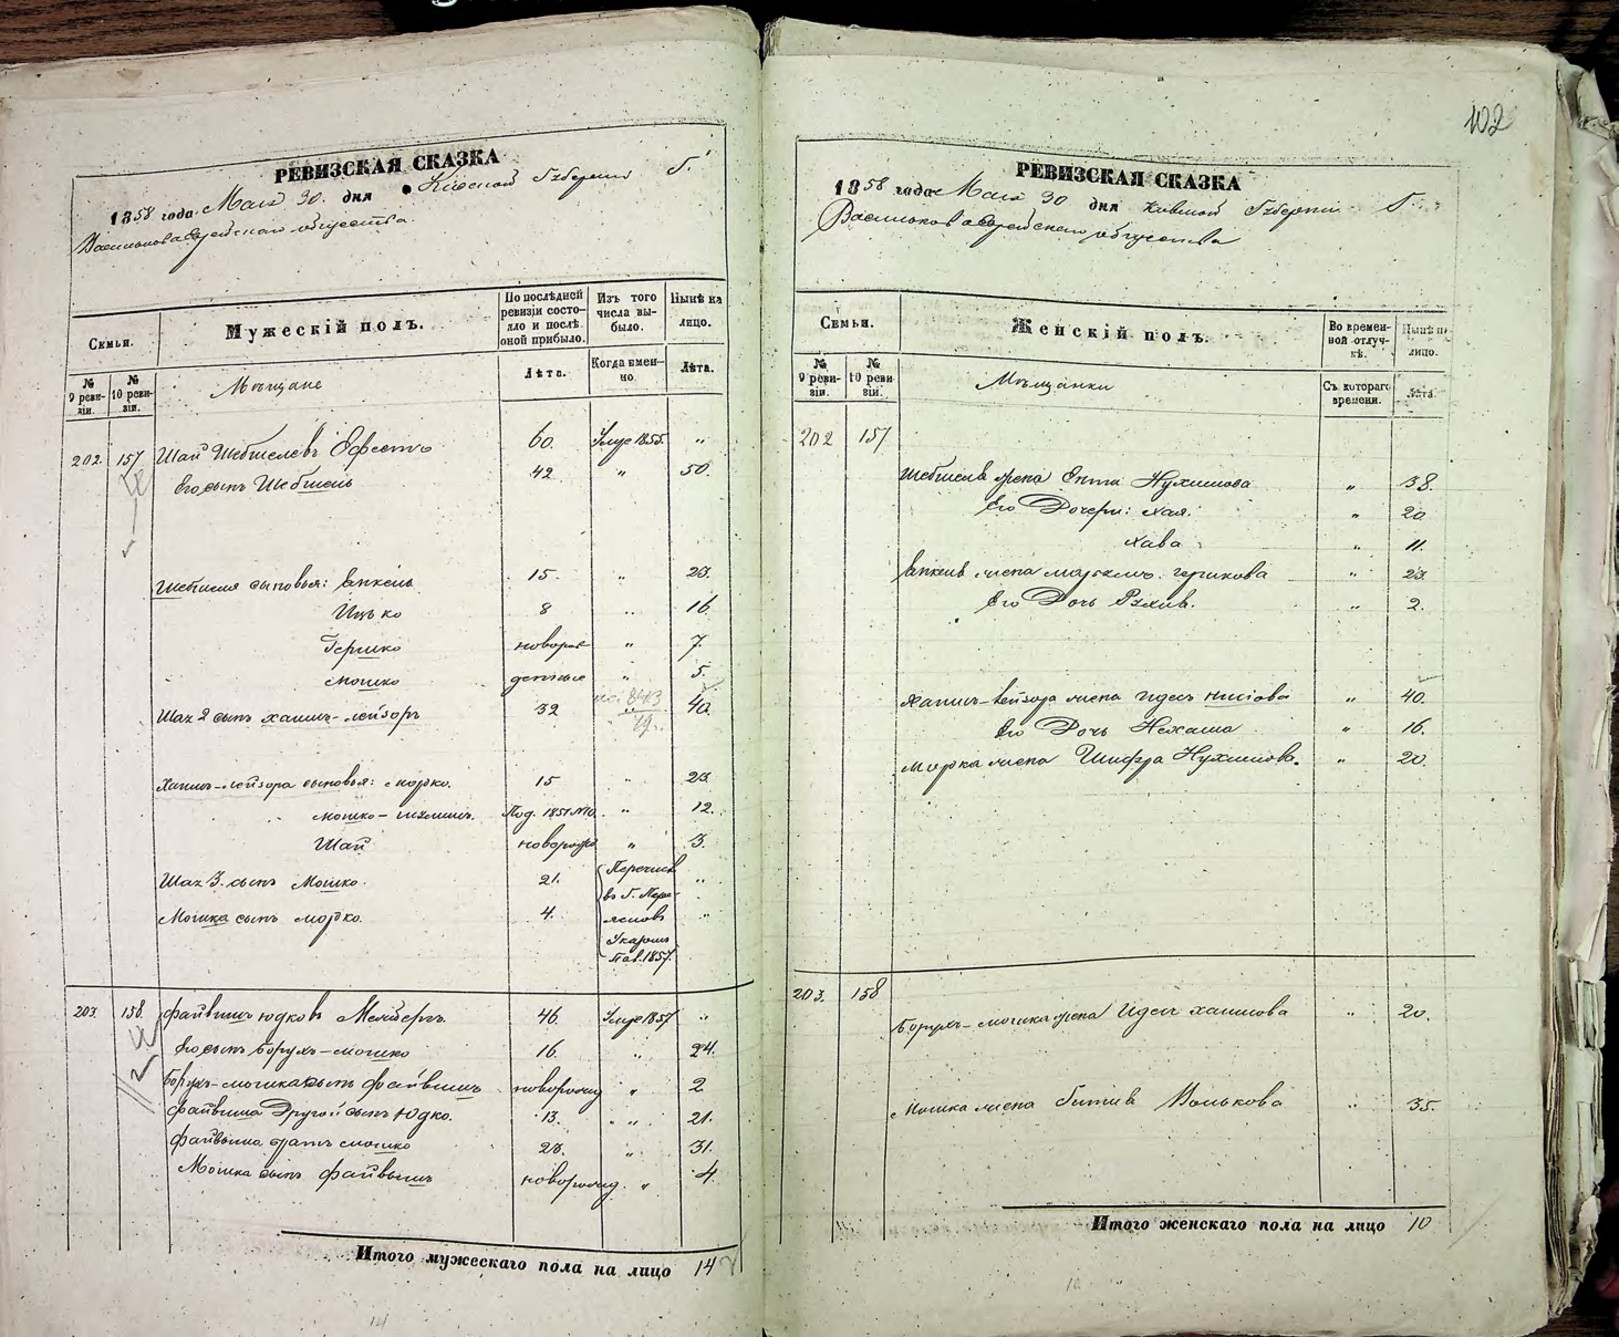 РЕВИЗСКАЯ СКАЗКА
1858 года Мая 30. дня Киевской Губернии Г.
еврейскаго общества.
Семьи.
Мужескій полъ.
По послѣдней ревизіи состояло и послѣ оной прибыло.
Изъ того числа выбыло.
Нынѣ на лицо.
№ 9 ревизіи.
№ 10 ревизіи.
Мѣщане
Лѣта.
Когда именно
Лѣта.
202. 157 Шая Шебшелевъ 60. Умре 1855. "
Его сынъ Шебшель 42 " 50.
Шебшеля сыновья: Янкель 15. " 23.
Ицько 8 " 16.
Гершко новорож " 7.
Мошко денные " 5.
Шая 2 сынъ Хаимъ-Лейзоръ 32 " 40.
Хаимъ-Лейзора сыновья: Мордко. 15 " 23
Мошко- 1851 №10. " 12.
Шая новорожд " 3.
Шая 3. сынъ Мошко. 21. Перечисл "
въ Г.
Мошка сынъ Мордко. 4. "
Указомъ
Пал. 1857.
203. 158. Файвишъ Юдковъ 46. Умре 1857 "
Его сынъ Борухъ-Мошко 16. " 24.
Борухъ-Мошка сынъ Файвишъ новорожд " 2
Файвиша Другой сынъ Юдко. 13. " 21.
Файвиша братъ Мошко 23. " 31.
Мошка сынъ Файвышъ новорожд. " 4.
Итого мужескаго пола на лицо 14
102
РЕВИЗСКАЯ СКАЗКА
1858 года Мая 30 дня Киевской Губерніи Г.
еврейскаго общества
Семьи.
Женскій полъ.
Во временной отлучкѣ.
Нынѣ на лицо.
№ 9 ревизіи.
№ 10 ревизіи.
Мѣщанки
Съ котораго времени.
Лѣта.
202 157
Шебшеля жена Ента Нухимова " 38.
Его Дочери: Хая. " 20
Хава " 11.
Янкеля жена Гершкова " 23.
Его Дочь " 2.
Хаимъ-Лейзора жена Идесъ " 40.
Его Дочь Нехама " 16.
Мордка жена Шифра Нухимова. " 20.
203. 158
Борухъ-Мошка жена Идесъ Хаимова " 20.
Мошка жена Гитля Волькова " 35.
Итого женскаго пола на лицо 10